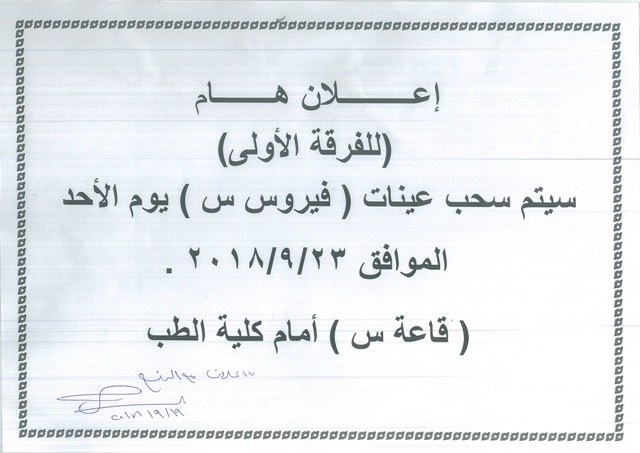 إعلان هام
(للفرقة الأولى)
سيتم سحب عينات ( فيروس س ) يوم الأحد
الموافق ٢٠١٨/٩/٢٣ .
( قاعة س ) أمام كلية الطب